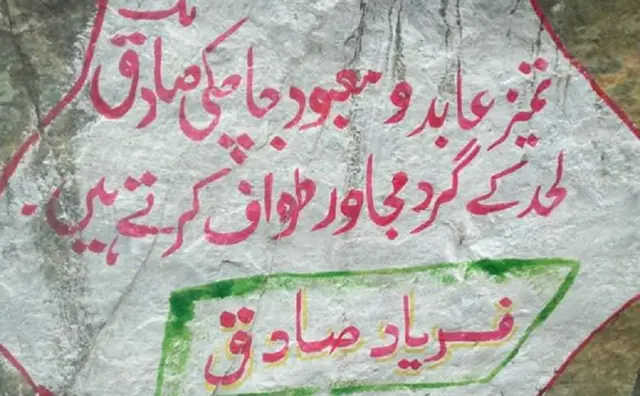 تمیز عابد و معبود جا چکی صادق
لحد کے گرد مجاور طواف کرتے ہیں۔
فریاد صادق